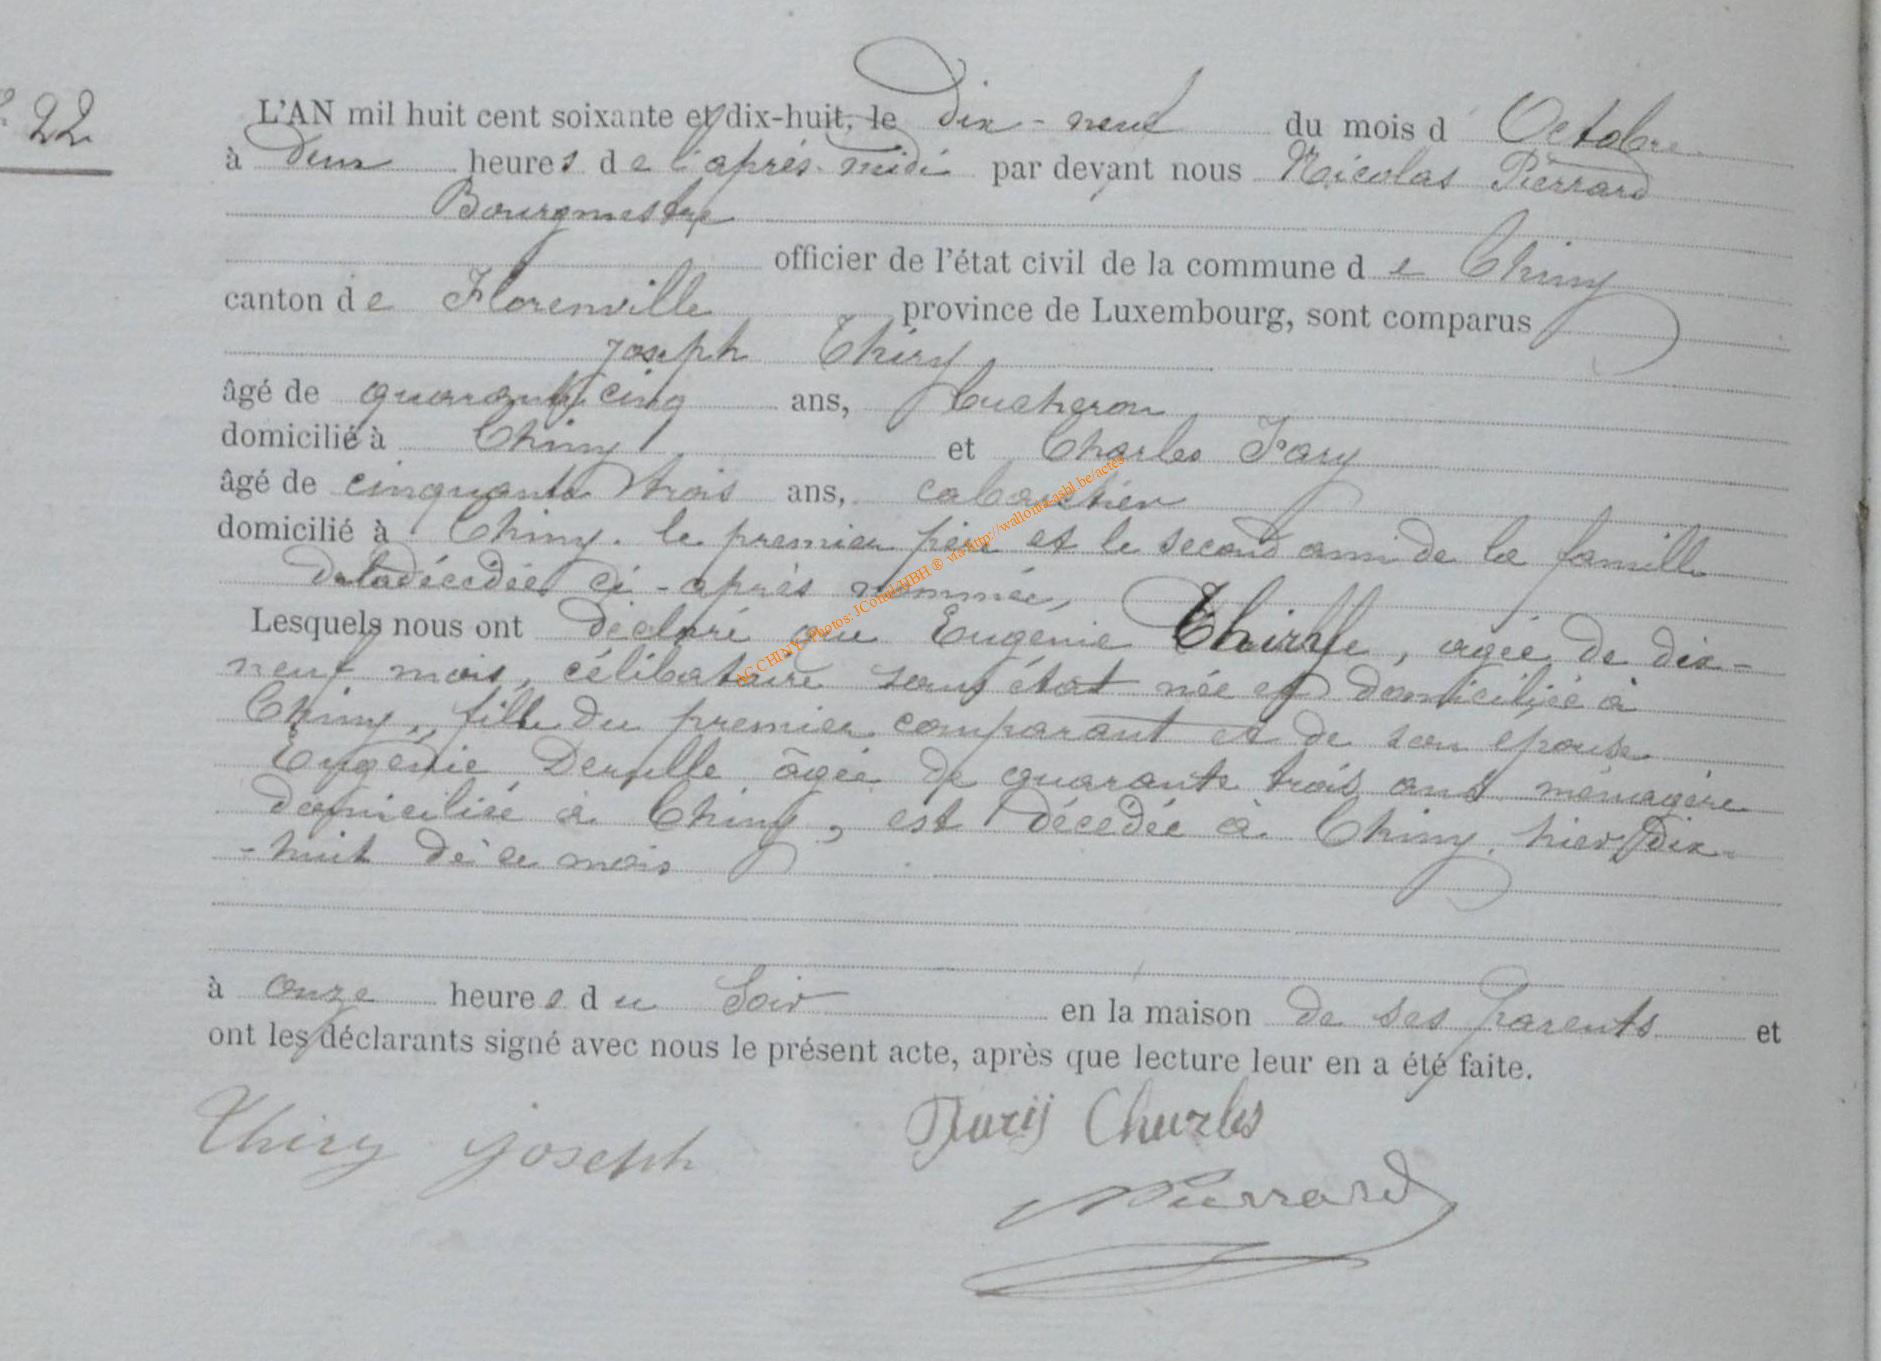 22
L'AN mil huit cent soixante et dix-huit, le dix-neuf du mois d'Octobre
à deux heures de l'après-midi par devant nous Nicolas Pierrard
Bourgmestre
officier de l'état civil de la commune de Chiny
canton de Florenville province de Luxembourg, sont comparus
Joseph Thiry
âgé de quarante cinq ans, bucheron
domicilié à Chiny et Charles Fary
âgé de cinquante trois ans, cabartier
domicilié à Chiny. le premier père et le second ami de la famille
de la décédée ci-après nommée,
Lesquels nous ont déclaré que Eugenie Thiry, agée de dix-
neuf mois, célibataire sans état née et domiciliée à
Chiny, fille du premier comparant et de son epouse
Eugénie Derulle âgée de quarante trois ans ménagère
domiciliée à Chiny, est décédée à Chiny. hier dix-
-huit de ce mois
à onze heures du Soir en la maison de ses parents et
ont les déclarants signé avec nous le présent acte, après que lecture leur en a été faite.
Thiry joseph
Charles
NPierrard
AC CHINY - Photos: JConul/HBH ® via http://wallonia-asbl.be/actes